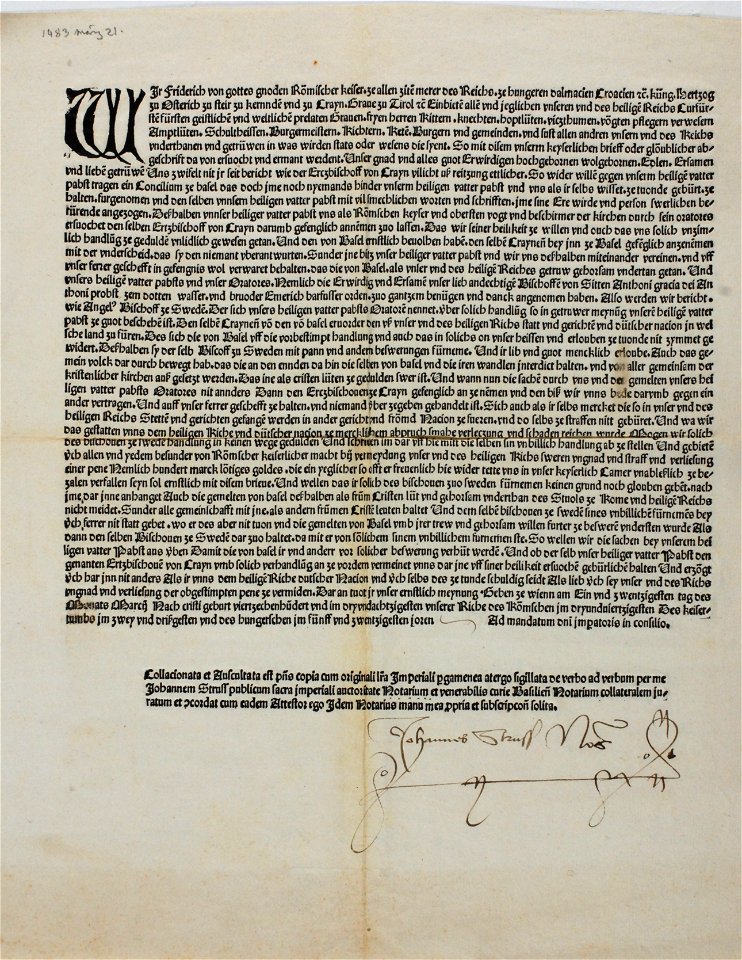 1483 März 21.
WIr Friderich von gottes gnoden Römischer keiser. ze allen zitē merer des Reichs. ze hungeren dalmacien Croacien ꝛē. küng. Hertzog
zu Osterich zu steir zu kernndē vnd zu Crayn. Graue zu Tirol ꝛē Einbietē allē vnd jeglichen vnseren vnd des heiligē Reichs Curfür-
stē fürsten geistlichē vnd weltlichē prelaten Grauen. fryen herren Rittern. knechten. hoptlüten. viczthumen. vögten pflegern verwesern
Amptlüten. Schultheissen. Burgermeistern. Richtern. Retē. Burgern vnd gemeinden. vnd sust allen andren vnsern vnd des Reichs
vnderthanen vnd getrüwen in was wirden state oder wesens die synt. So mit disem vnserm keyserlichen brieff oder glöublicher ab-
geschrift da von ersuocht vnd ermant werdent. Unser gnad vnd alles guot Erwirdigen hochgebornen wolgebornen. Edlen. Ersamen
vnd liebē getrüwē Uns zwifelt nit jr seit bericht wie der Ertzbischoff von Crayn vilicht vs reitzung ettlicher. So wider willē gegen vnserm heiligē vatter
pabst tragen ein Concilium ze basel das doch jme noch nyemands hinder vnserm heiligen vatter pabst vnd vns als ir selbs wisset. ze tuonde gebürt. ze
halten. furgenomen vnd den selben vnsern heiligen vatter pabst mit vil smechlichen worten vnd schrifften. jme sine Ere wirde vnd person swerlichen be-
rürende angezogen. Deßhalben vnnser heiliger vatter pabst vns als Römschen keyser vnd obersten vogt vnd beschirmer der kirchen durch sein oratores
ersuochet den selben Ertzbischoff von Crayn darumb gefenglich annemen zuo lassen. Das wir seiner heilikeit ze willen vnd ouch das vns solich vnzim-
lich handlūg ze geduldē vnlidlich gewesen getan. Und den von Basel ernstlich beuolhen habē. den selbē Craynen bey jnn ze Basel gefēglich anzenemen
mit der vnderscheid. das sy den niemant vberantwurten. Sunder jne bitz vnser heiliger vatter pabst vnd wir vns deßhalben miteinander vereinen. vnd vff
vnser ferrer geschefft in gefengnis wol verwaret behalten. das die von Basel. als vnser vnd des heiligē Reiches getruw gehorsam vndertan getan. Und
vnsers heiligē vatter pabsts vnd vnser Oratores. Nemlich die Erwirdig vnd Ersamē vnser lieb andechtigē Bischoffē von Sitten Anthoni gracia dei An
thoni probst zem dotten wasser. vnd bruoder Emerich barfusser orden. zuo gantzem benügen vnd danck angenomen haben. Also werden wir bericht.
wie Angel9 Bischoff ze Swedē. Der sich vnsers heiligen vatter pabsts Oratorē nennet. vber solich handlūg so in getruwer meynūg vnserē heiligē vatter
pabst ze guot beschehē ist. Den selbē Craynen vō den vō basel eruorder den vß vnser vnd des heiligen Richs statt vnd gerichtē vnd dütscher nacion jn wel
sche land zu füren. Des sich die von Basel vff die vorbestimpt handlung vnd auch das in solichs on vnser heissen vnd erlouben ze tuonde nit zymmet ge
widert. Deßhalben sy der selb Biscoff zu Sweden mit pann vnd andern beswerungen fürneme. Und ir lib vnd guot mencklich erloube. Auch das ge-
mein volck dar durch bewegt hab. das die an den ennden da hin die selben von basel vnd die iren wandlen jnterdict halten. vnd von aller gemeinsam der
kristenlicher kirchen auß gesetzt werden. Das ine als cristen lüten ze gedulden swer ist. Und wann nun die sachē durch vns vnd den gemelten vnsers hei
ligen vatter pabsts Oratores nit annders Dann den Ertzbischouen ze Crayn gefenglich an ze nēmen vnd den biß wir vnns bede darumb gegen ein
ander vertragen. Und auff vnser ferrer geschefft ze halten. vnd niemand vber zegeben gehandelt ist. Sich auch als ir selbs mercket die so in vnser vnd des
heiligen Reichs Stetē vnd gerichten gefangē werden in ander gericht vnd frömd Nacion ze fueren. vnd do selbs ze straffen nitt gebüret. Und wa wir
das gestatten vnns dem heiligen Riche vnd dütscher nacion ze mercklichem abpruch smahe verletzung vnd schaden reichen wurde Mogen wir solich
des bischouen ze swedē handlung in keinen wege gedulden Und schriben im dar vff hie mitt die selben sin vnbillich handlung ab ze stellen Und gebietē
vch allen vnd yedem besunder von Römischer keiserlicher macht bij vermeydung vnser vnd des heiligen Richs sweren vngnad vnd straff vnd verliesung
einer pene Nemlich hundert marck lötiges goldes. die ein yeglicher so offt er freuenlich hie wider tette vns in vnser keyserlich Camer vnableslich ze be-
zalen verfallen seyn sol ernstlich mit disem brieue. Und wellen das ir solich des bischouen zuo sweden fürnemen keinen grund noch glouben gebēt. nach
jme dar jnne anhanget Auch die gemelten von basel deßhalben als frūm Cristen lüt vnd gehorsam vnderthan des Stuols ze Rome vnd heiligē Reichs
nicht meidet. Sunder alle gemeinschafft mit jne. als andern frūmen Cristē leuten haltet Und dem selbē bischouen ze swedē sines vnbillichē fürnemēs bey
vch ferrer nit statt gebet. wo er des aber nit tuon vnd die gemelten von Basel vmb jrer trew vnd gehorsam willen furter ze beswerē vndersten wurde Als
dann den selben Bischouen ze Swedē dar zuo haltet. da mit er von sölichem sinem vnbillichem furnemen ste. So wellen wir die sachen bey vnserem hei
ligen vatter Pabst auß vben Damit die von basel ir vnd anderr vor solicher beswerung verhüt werdē. Und ob der selb vnser heiliger vatter Pabst den
genanten Ertzbischouē von Crayn vmb solich verhandlūg an ze vordern vermeinet vnns dar jne vff siner heilikeit ersuochē gebürlichē halten Und erzögt
vch har jnn nit anders Als ir vnns dem heiligē Riche dutscher Nacion vnd vch selbs des ze tunde schuldig seidt Als lieb vch sey vnser vnd des Richs
vngnad vnd verliesung der obgestimpten pene ze vermiden. Dar an tuot jr vnser ernstlich meynung Geben ze wienn am Ein vnd zwentzigesten tag des
Monats Marcij Nach cristi geburt viertzechenhūdert vnd im dryvndachtzigesten vnsere Riche des Römschen jm dryunduiertzigesten Des keiser-
tumbs jm zwey vnd drißgesten vnd des hungerschen jm fünff vnd zwentzigesten joren Ad mandatum dni imperatoris in consilio.
Collacionata et Auscultata est pn̄s copia cum originali lr̄a Jmperiali pgamenea atergo sigillata de verbo ad verbum per me
Johannem Struss publicum sacra imperiali auctoritate Notarium et venerabilis curie Basilien̄ Notarium collateralem ju-
ratum et ꝯcordat cum eadem Attestor ego Jdem Notarius manu mea ꝓpria et subscripcōn solita.
Johannes Struss Not